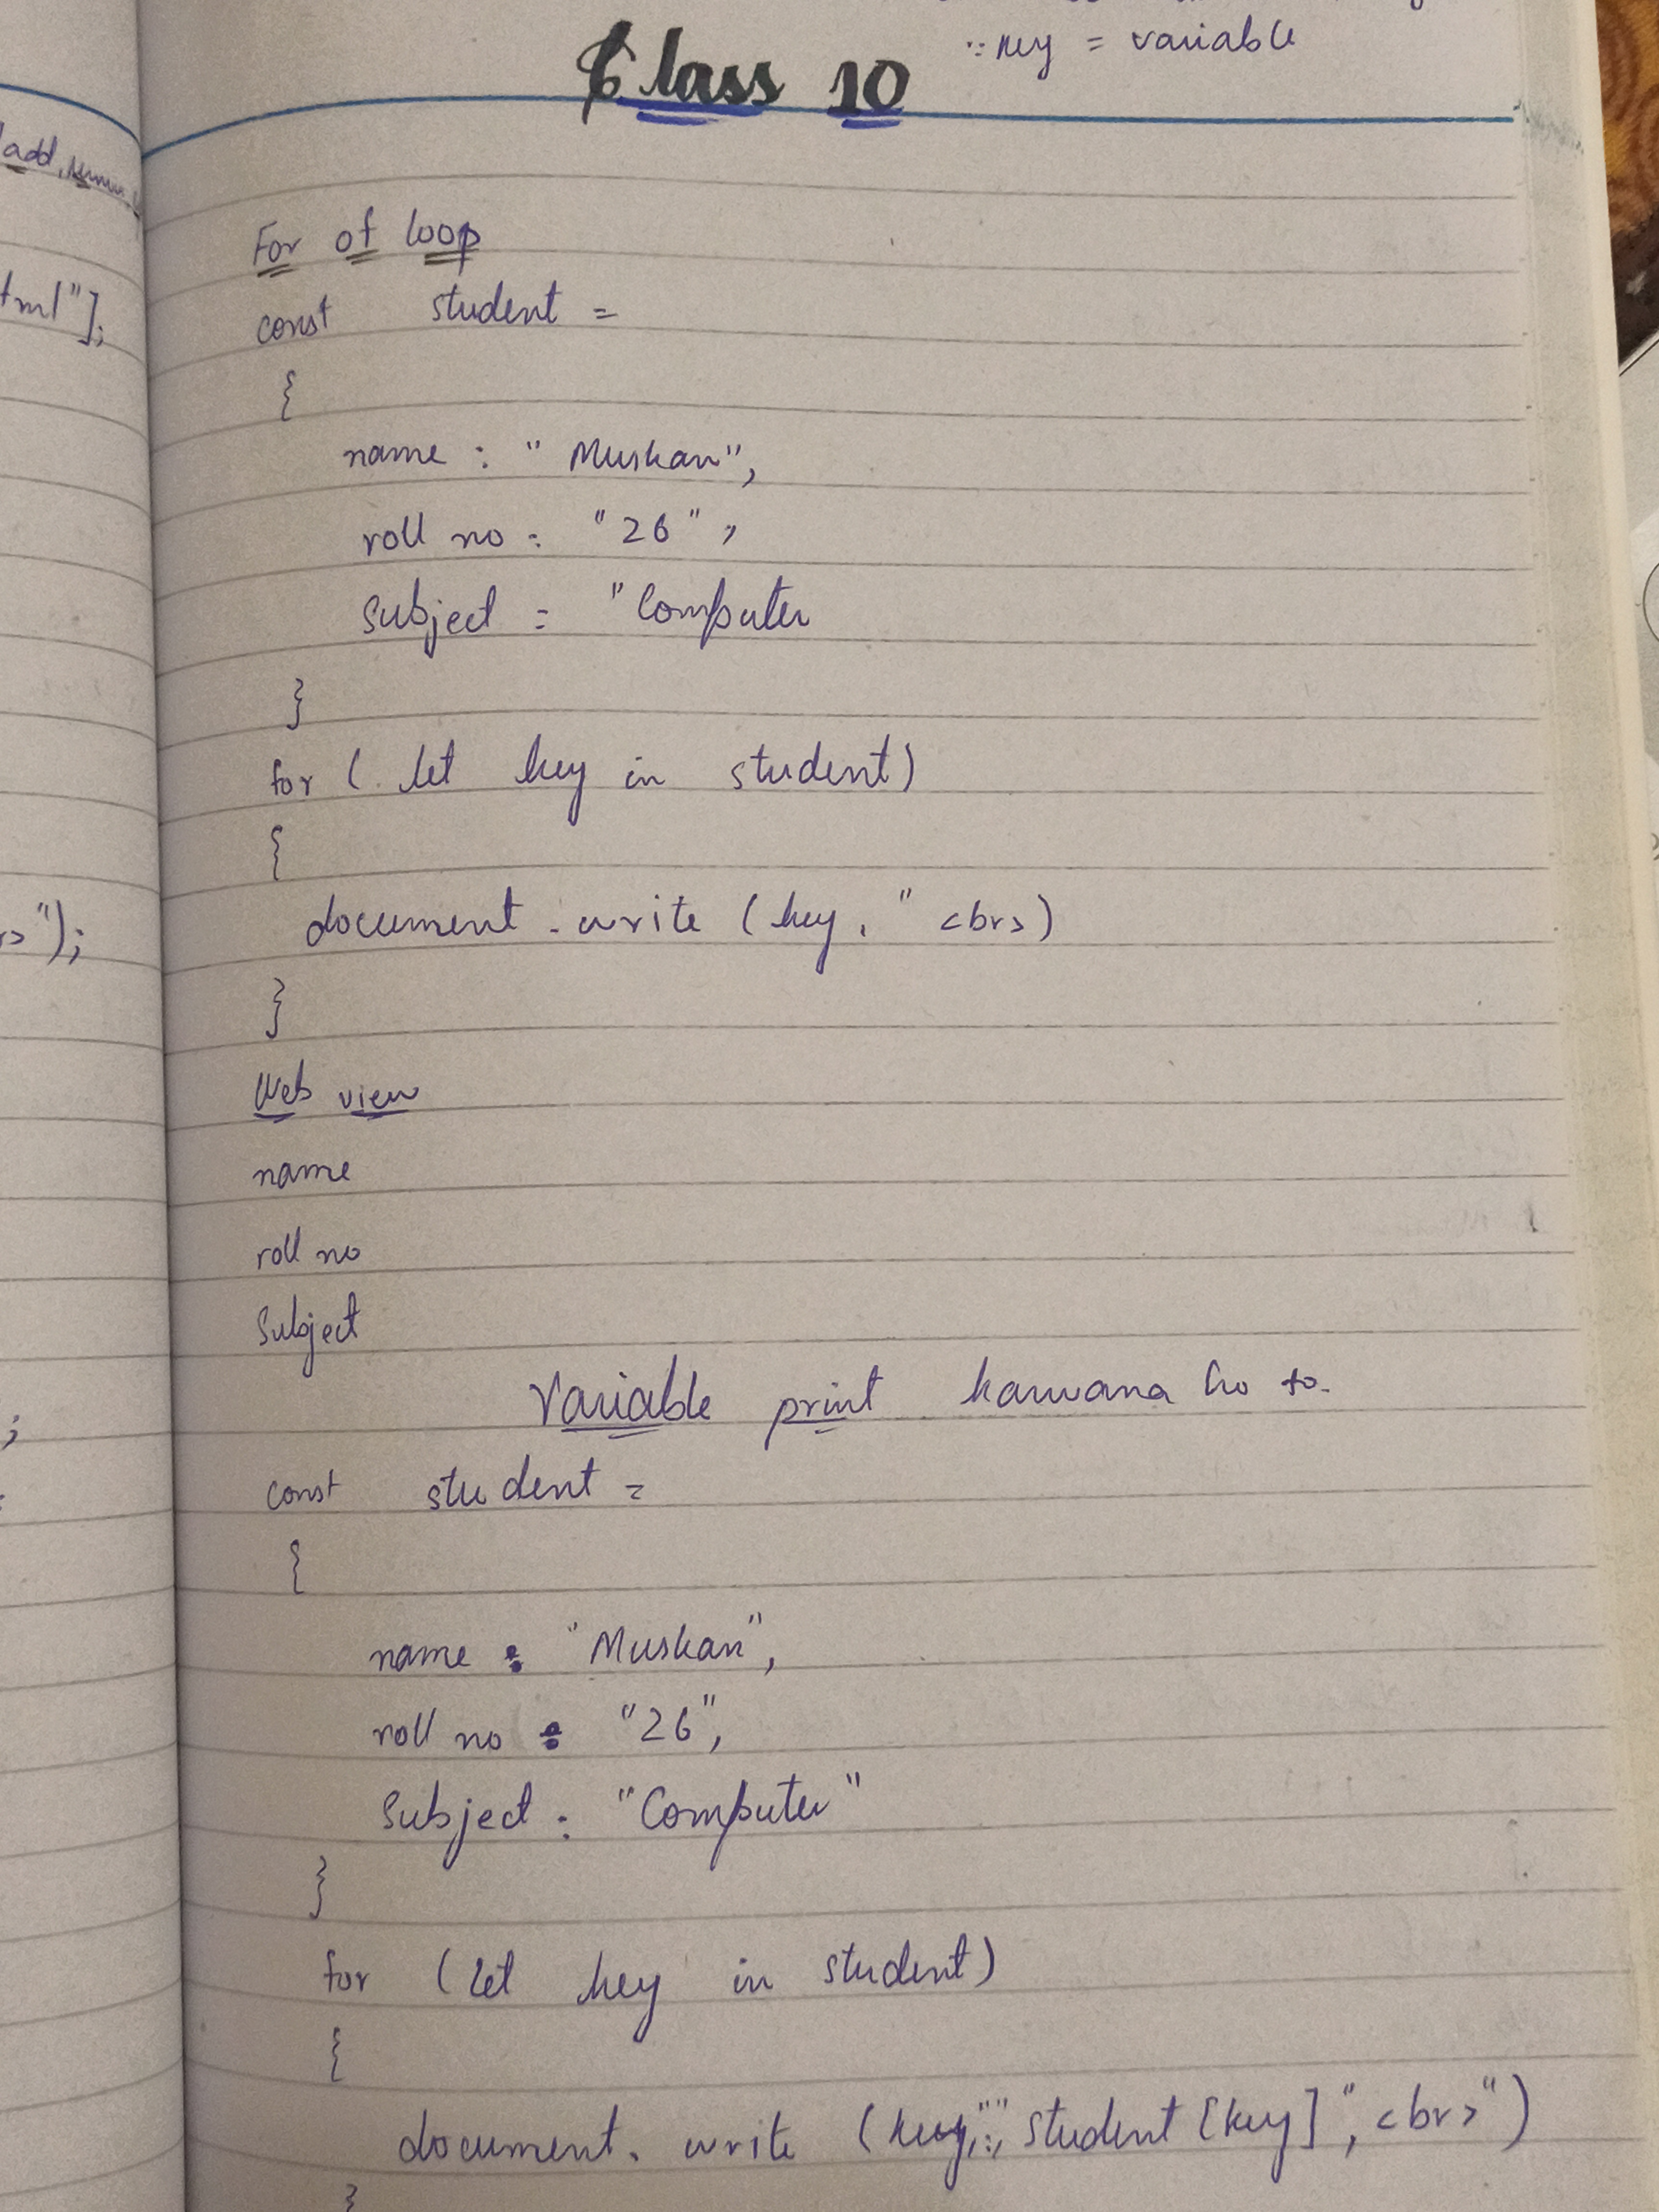 ∵ key = variable
Class 10
add,
tml"];
For of loop
const student =
{
name : " Muskan",
roll no : "26",
Subject = "Computer
}
for ( let key in student)
{
document.write (key, " <br>)
}
");
Web view
name
roll no
Subject
Variable print karwana ho to.
;
const student =
{
name : "Muskan",
roll no : "26",
Subject : "Computer"
}
for (let key in student)
{
document. write (key,":", student [key]", <br>")
}